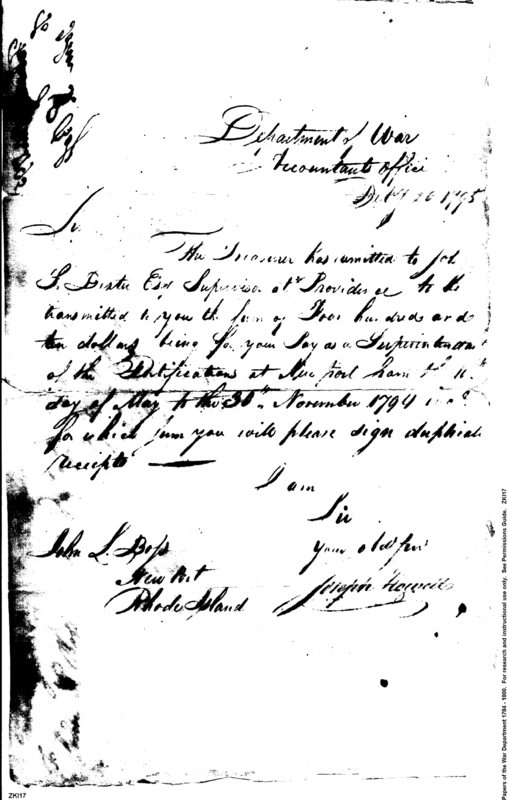 Department of War
Accountants office
26 1795
Sir
The Treasurer has remitted to
S. Dexter Esq Supervisor at Providence to be
transmitted to you the sum of Four hundred and
ten dollars being for your Pay as a Superintendant
of the Fortifications at New port from the
day of May to the 30th November 1794
for which sum you will please sign duplicate
receipts
I am
Sir
your obd Ser
Joseph Howell
John L. Boss
New Port
Rhode Island
ZKI17
Papers of the War Department 1784 - 1800. For research and instructional use only. See Permissions Guide. ZKI17